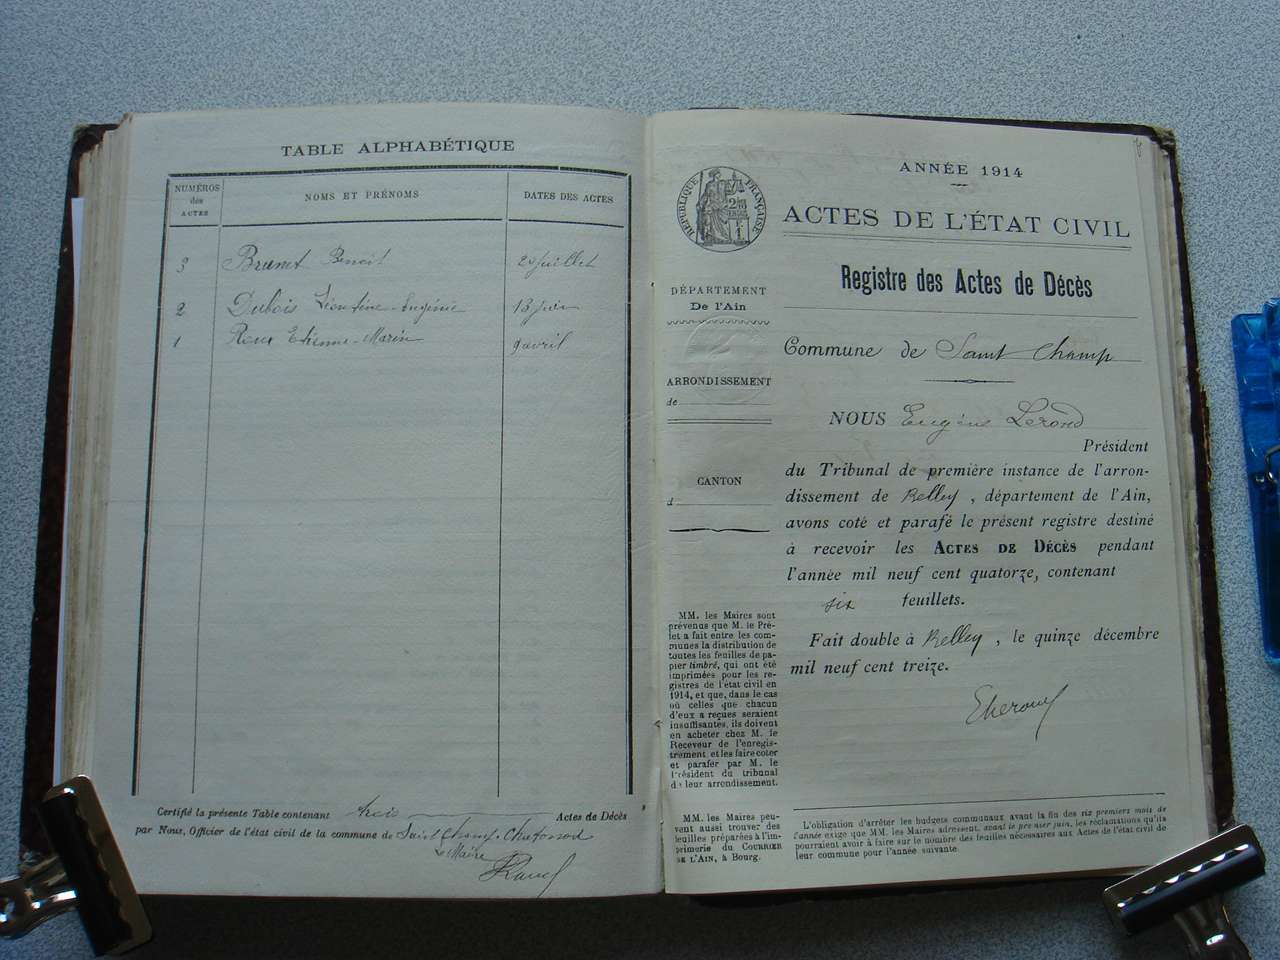 TABLE ALPHABÉTIQUE
NUMÉROS
des
ACTES
NOMS ET PRÉNOMS
DATES DES ACTES
3 Brunet Benoit 20 juillet
2 Dubois Léontine-Eugénie 13 juin
1 Roux Etienne-Marin 9 avril
Certifié la présente Table contenant trois Actes de Décès
par Nous, Officier de l'état civil de la commune de Saint Champ-Chatonod
Le Maire
ANNÉE 1914
RÉPUBLIQUE FRANÇAISE
ACTES DE L'ÉTAT CIVIL
Registre des Actes de Décès
DÉPARTEMENT
De l'Ain
ARRONDISSEMENT
de
CANTON
d
Commune de Saint Champ
NOUS Eugène
Président
du Tribunal de première instance de l'arron-
dissement de Belley, département de l'Ain,
avons coté et parafé le présent registre destiné
à recevoir les ACTES DE DÉCÈS pendant
l'année mil neuf cent quatorze, contenant
six feuillets.
Fait double à Belley, le quinze décembre
mil neuf cent treize.
MM. les Maires sont
prévenus que M. le Pré-
fet a fait entre les com-
munes la distribution de
toutes les feuilles de pa-
pier timbré, qui ont été
imprimées pour les re-
gistres de l'état civil en
1914, et que, dans le cas
où celles que chacun
d'eux a reçues seraient
insuffisantes, ils doivent
en acheter chez M. le
Receveur de l'enregis-
trement, et les faire coter
et parafer par M. le
Président du tribunal
de leur arrondissement.
MM. les Maires peu-
vent aussi trouver des
feuilles préparées à l'im-
primerie du COURRIER
DE L'AIN, à Bourg.
L'obligation d'arrêter les budgets communaux avant la fin des six premiers mois de
l'année exige que MM. les Maires adressent, avant le premier juin, les réclamations qu'ils
pourraient avoir à faire sur le nombre des feuilles nécessaires aux Actes de l'état civil de
leur commune pour l'année suivante.